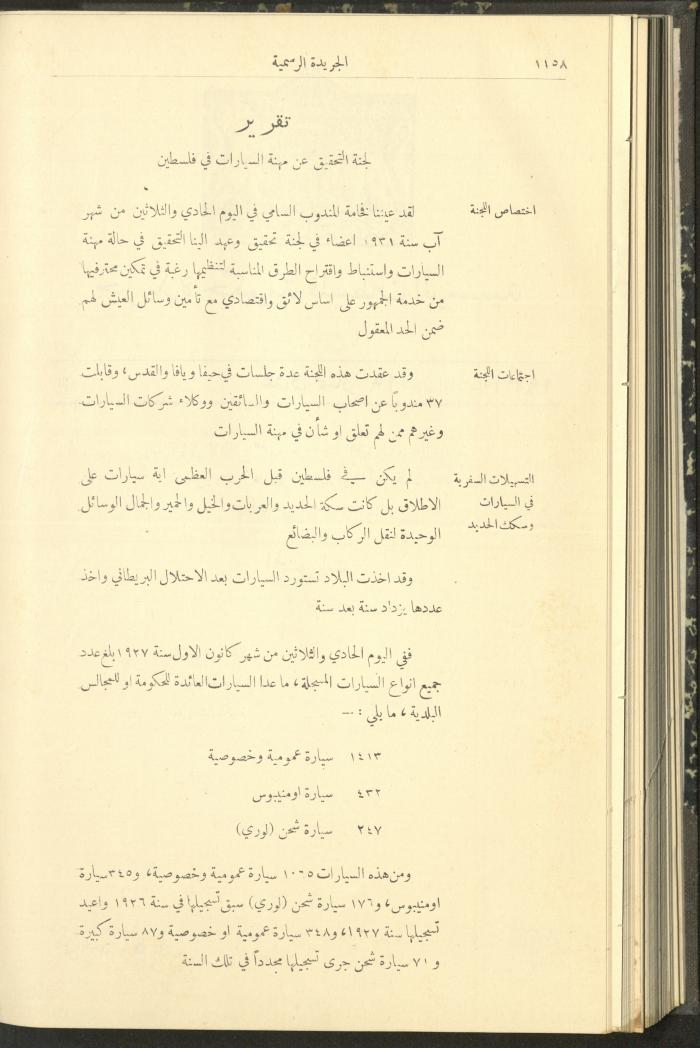 ١١٥٨
الجريدة الرسمية
تقرير
لجنة التحقيق عن مهنة السيارات في فلسطين
اختصاص اللجنة
لقد عيننا فخامة المندوب السامي في اليوم الحادي والثلاثين من شهر
آب سنة ١٩٣١ اعضاء في لجنة تحقيق وعهد الينا التحقيق في حالة مهنة
السيارات واستنباط واقتراح الطرق المناسبة لتنظيمها رغبة في تمكين محترفيها
من خدمة الجمهور على اساس لائق واقتصادي مع تأمين وسائل العيش لهم
ضمن الحد المعقول
اجتماعات اللجنة
وقد عقدت هذه اللجنة عدة جلسات في حيفا ويافا والقدس، وقابلت
٣٧ مندوبًا عن اصحاب السيارات والسائقين ووكلاء شركات السيارات
وغيرهم ممن لهم تعلق او شأن في مهنة السيارات
التسهيلات السفرية
في السيارات
وسكك الحديد
لم يكن في فلسطين قبل الحرب العظمى اية سيارات على
الاطلاق بل كانت سكة الحديد والعربات والخيل والحمير والجمال الوسائل
الوحيدة لنقل الركاب والبضائع
وقد اخذت البلاد تستورد السيارات بعد الاحتلال البريطاني واخذ
عددها يزداد سنة بعد سنة
ففي اليوم الحادي والثلاثين من شهر كانون الاول سنة ١٩٢٧ بلغ عدد
جميع انواع السيارات المسجلة، ما عدا السيارات العائدة للحكومة او للمجالس
البلدية، ما يلي :—
١٤١٣ سيارة عمومية وخصوصية
٤٣٢ سيارة اومنيبوس
٢٤٧ سيارة شحن (لوري)
ومن هذه السيارات ١٠٦٥ سيارة عمومية وخصوصية، و٣٤٥ سيارة
اومنيبوس، و١٧٦ سيارة شحن (لوري) سبق تسجيلها في سنة ١٩٢٦ واعيد
تسجيلها سنة ١٩٢٧، و٣٤٨ سيارة عمومية او خصوصية و٨٧ سيارة كبيرة
و ٧١ سيارة شحن جرى تسجيلها مجدداً في تلك السنة